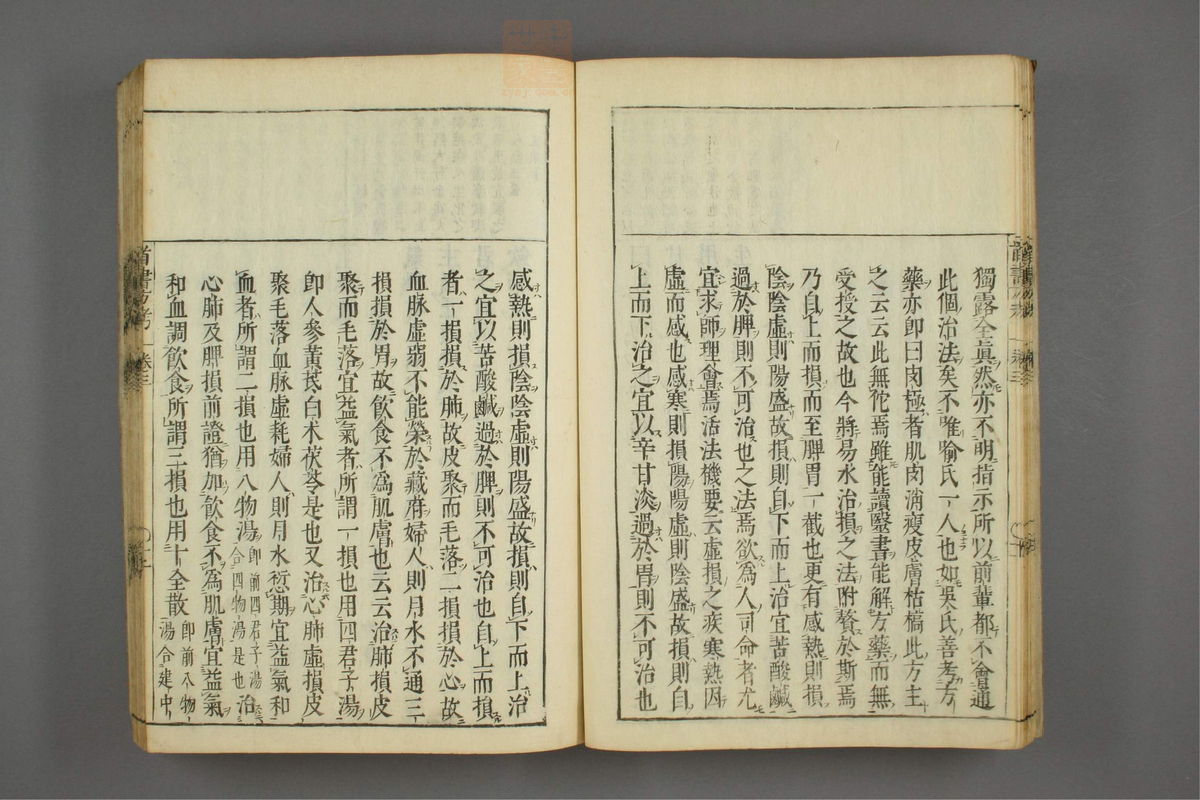 獨露全眞然亦不明指示所以前輩都不會通
此個治法矣不唯喻氏一人也如吳氏善考方
藥亦卽曰肉極者肌肉消瘦皮膚枯槁此方主
之云云此無佗焉雖能讀醫書能解方藥而無
受授之故也今將易水治損之法附贅於斯焉
乃自上而損而至脾胃一截也更有感熱則損
陰陰虛則陽盛故損則自下而上治宜苦酸鹹
過於脾則不可治也之法焉欲爲人司命者尤
宜求師理會焉活法機要云虛損之疾寒熱因
虛而感也感寒則損陽陽虛則陰盛故損則自
上而下治之宜以辛甘淡過於胃則不可治也
感熱則損陰陰虛則陽盛故損則自下而上治
之宜以苦酸鹹過於脾則不可治也自上而損
者一損損於肺故皮聚而毛落二損損於心故
血脉虛弱不能榮於藏府婦人則月水不通三
損損於胃故飮食不爲肌膚也云云治肺損皮
聚而毛落宜益氣者所謂一損也用四君子湯
卽人參黃芪白朮茯苓是也又治心肺虛損皮
聚毛落血脉虛耗婦人則月水愆期宜益氣和
血者所謂二損也用八物湯卽前四君子湯合四物湯是也治
心肺及脾損前證猶加飮食不爲肌膚宜益氣
和血調飮食所謂三損也用十全散卽前八物湯合建中
卷三
卷三